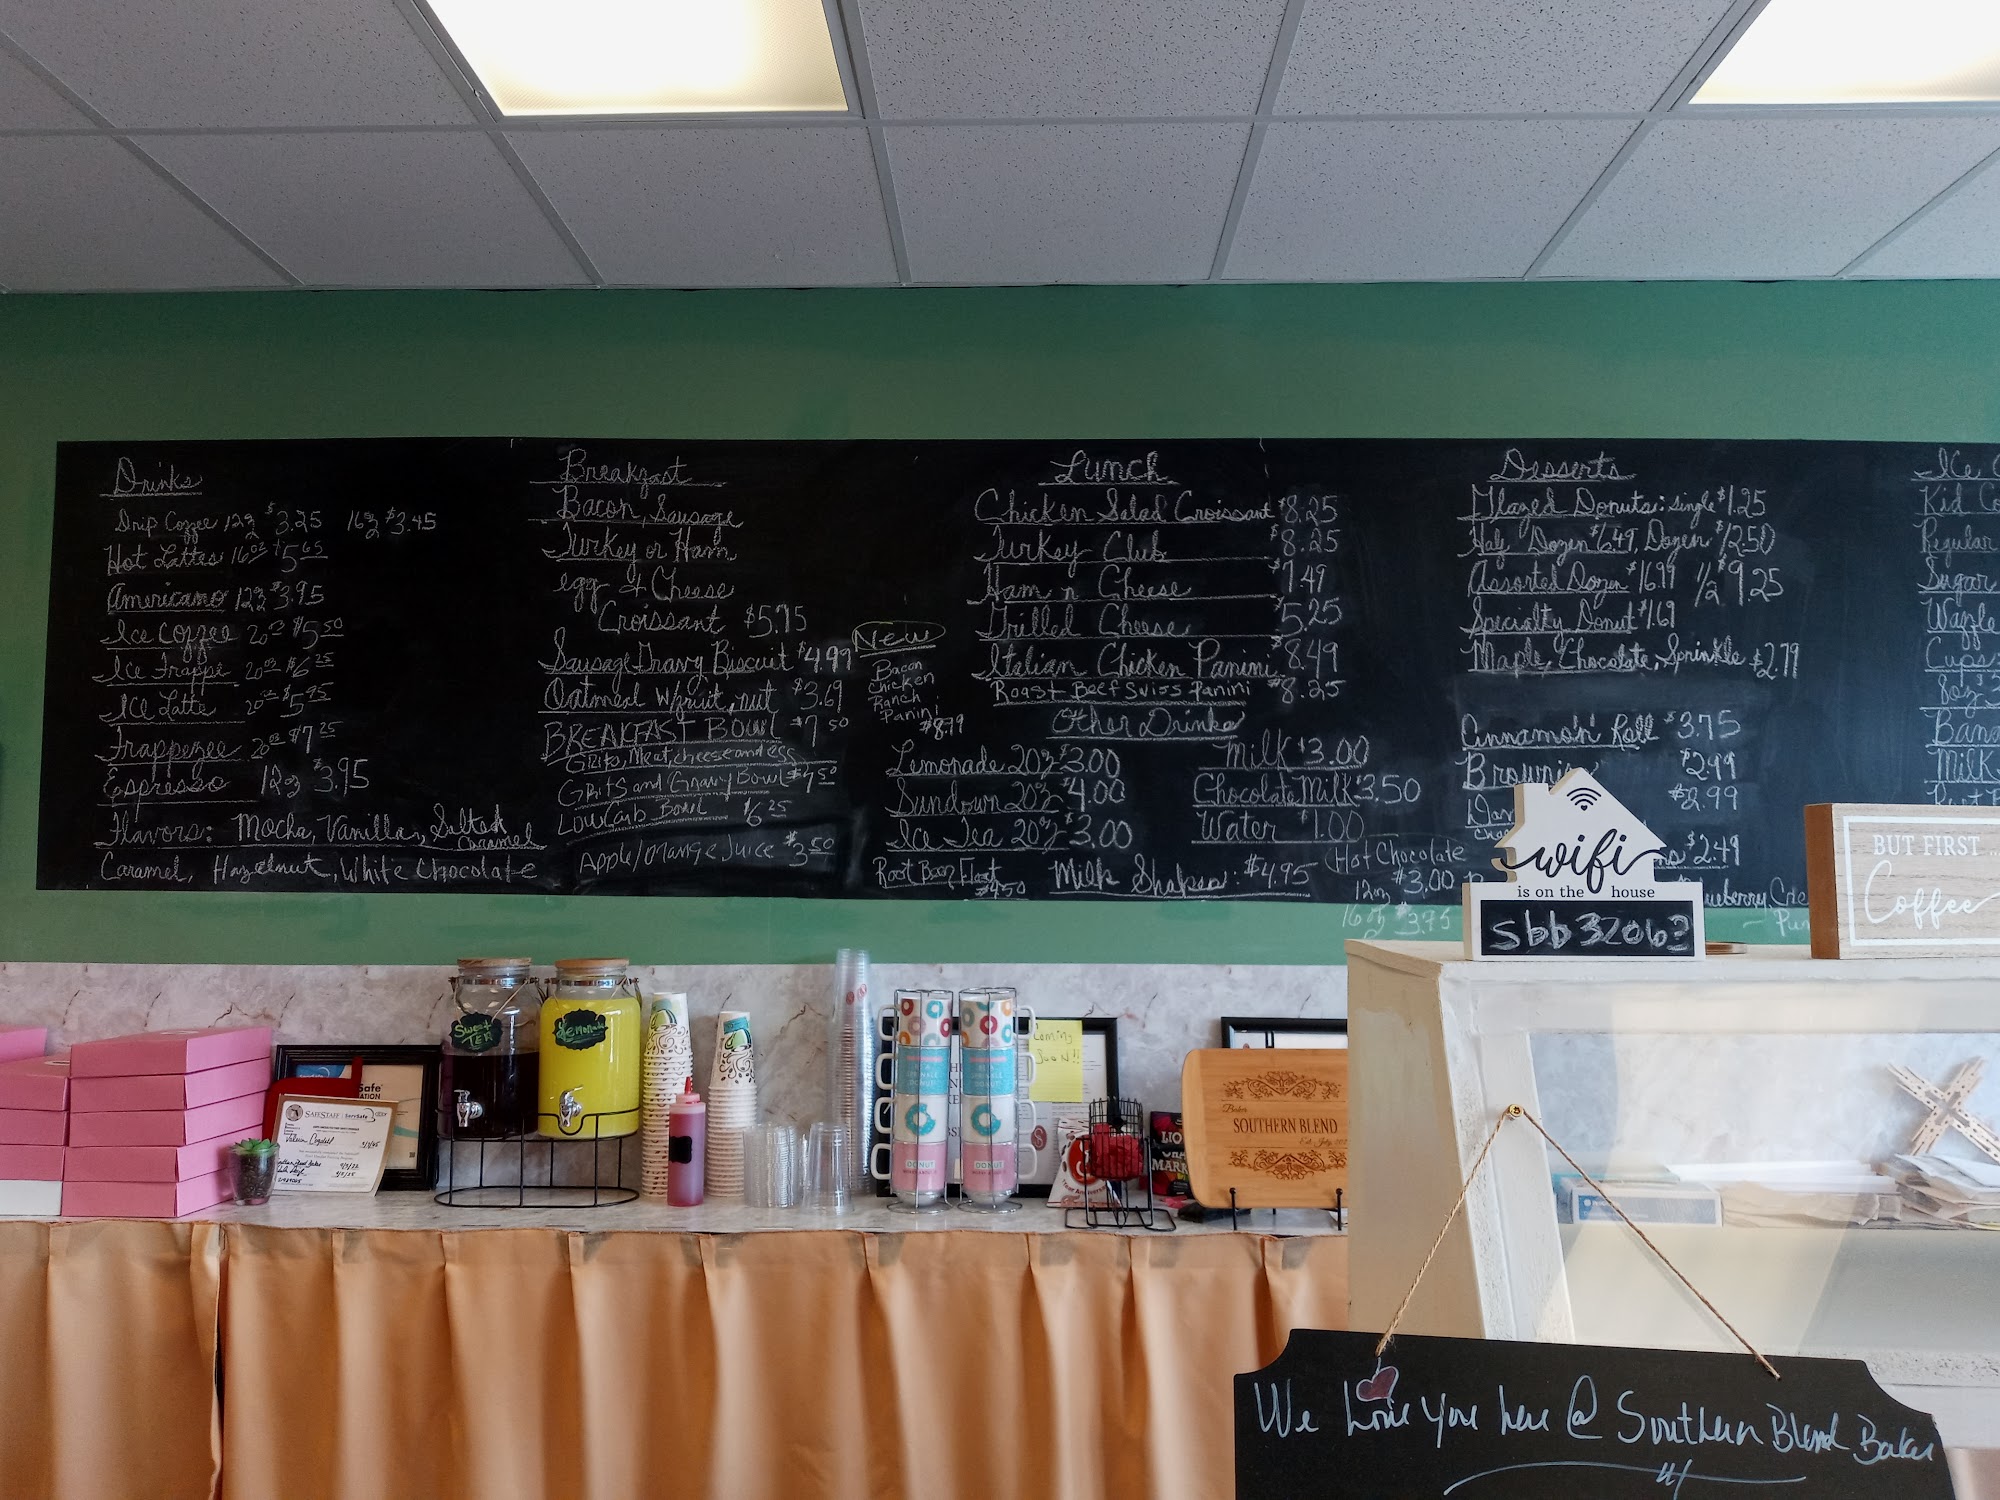 Drinks
Drip Coffee 12oz $3.25 16oz $3.45
Hot Lattes 16oz $5.65
Americano 12oz $3.95
Ice Coffee 20oz $5.50
Ice Frappe 20oz $6.25
Ice Latte 20oz $5.95
Frappezee 20oz $7.25
Espresso 12oz $3.95
Flavors: Mocha, Vanilla, Salted Caramel
Caramel, Hazelnut, White Chocolate
Breakfast
Bacon, Sausage
Turkey or Ham
egg & Cheese
Croissant $5.75
Sausage Gravy Biscuit $4.99
Oatmeal w/fruit, nut $3.69
BREAKFAST BOWL $7.50
Grits, Meat, cheese and egg
Grits and Gravy Bowl $4.50
Low Carb Bowl $6.25
Apple/Orange Juice $3.50
New
Bacon
Chicken
Ranch
Panini
$8.79
Lunch
Chicken Salad Croissant $8.25
Turkey Club $8.25
Ham n Cheese $7.49
Grilled Cheese $5.25
Italian Chicken Panini $8.49
Roast Beef Swiss Panini $8.25
Other Drinks
Lemonade 20oz $3.00
Sundown 20oz $4.00
Ice Tea 20oz $3.00
Root Beer Float $4.50
Milk $3.00
Chocolate Milk $3.50
Water $1.00
Milk Shakes: $4.95
Hot Chocolate
12oz $3.00
16oz $3.75
Desserts
Glazed Donuts: Single $1.25
Half Dozen $6.49, Dozen $12.50
Assorted Dozen $16.99 1/2 $9.25
Specialty Donut $1.69
Maple, Chocolate, Sprinkle $2.79
Cinnamon Roll $3.75
Brownie $2.99
$2.99
$2.49
Ice
Kid
Regular
Sugar
Waffle
Cups:
8oz
Milk
wifi
is on the house
sbb32063
BUT FIRST ...
Coffee
SWEET TEA
Lemonade
Coming Soon!!
SAFESTAFF
DONUT
DONUT
SOUTHERN BLEND
We love you here @ Southern Blend Baker